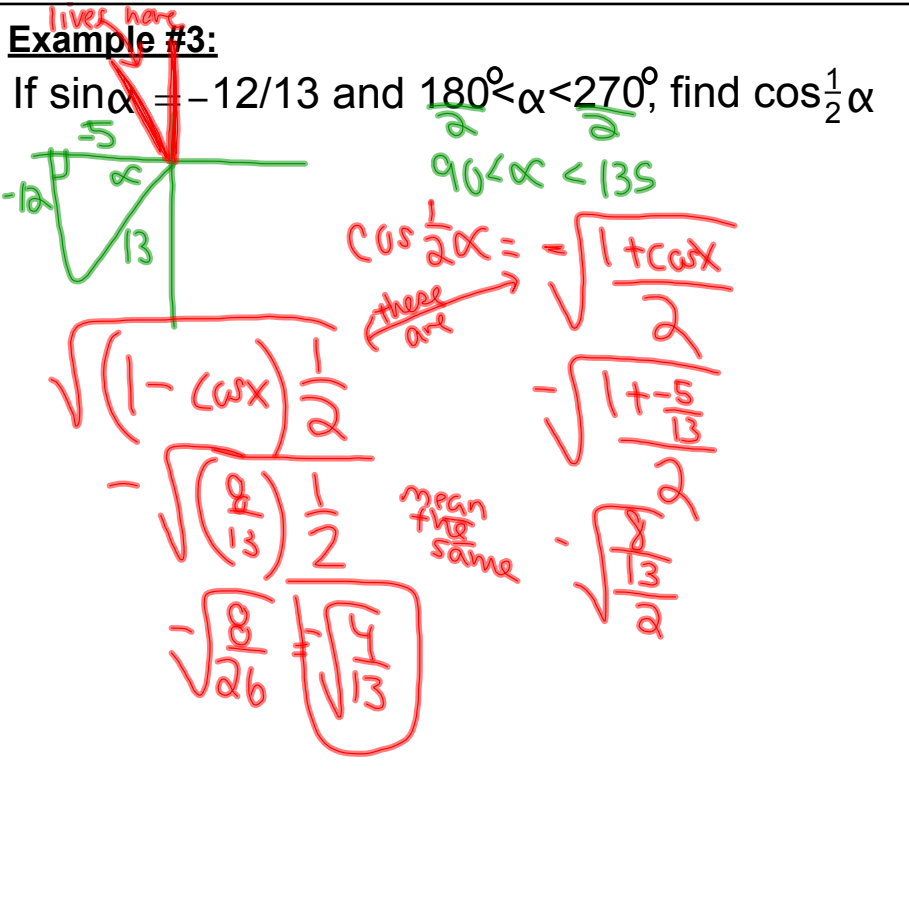 lives here
Example #3:
If sinα = -12/13 and 180°<α<270°, find cos½α
2 2
-5
α
-12
13
90<α<135
cos½α = -√((1+cosx)/2)
these
are
√((1-cosx)1/2)
-√((1+-5/13)/2)
-√((8/13)1/2)
mean
the
same
-√((8/13)/2)
-√(8/26) = -√(4/13)